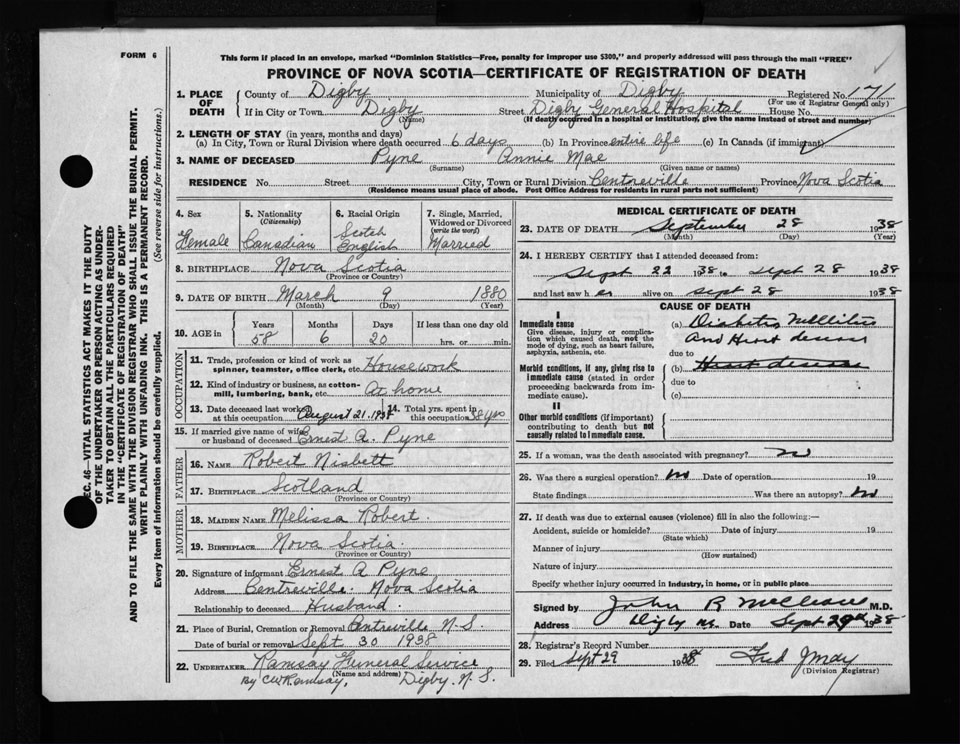 FORM 6
This form if placed in an envelope, marked "Dominion Statistics—Free, penalty for improper use $300," and properly addressed will pass through the mail "FREE"
PROVINCE OF NOVA SCOTIA—CERTIFICATE OF REGISTRATION OF DEATH
SEC. 46—VITAL STATISTICS ACT MAKES IT THE DUTY
OF THE UNDERTAKER OR PERSON ACTING AS UNDER-
TAKER TO OBTAIN ALL THE PARTICULARS REQUIRED
IN THE "CERTIFICATE OF REGISTRATION OF DEATH"
AND TO FILE THE SAME WITH THE DIVISION REGISTRAR WHO SHALL ISSUE THE BURIAL PERMIT.
WRITE PLAINLY WITH UNFADING INK. THIS IS A PERMANENT RECORD.
Every item of information should be carefully supplied. (See reverse side for instructions.)
1. PLACE OF DEATH
County of Digby Municipality of Digby Registered No. 171
(For use of Registrar General only)
If in City or Town Digby Street Digby General Hospital House No.
(Name) (If death occurred in a hospital or institution, give the name instead of street and number)
2. LENGTH OF STAY (in years, months and days)
(a) In City, Town or Rural Division where death occurred 6 days (b) In Province entire life (c) In Canada (if immigrant)
3. NAME OF DECEASED Pyne Annie Mae
(Surname) (Given name or names)
RESIDENCE No. Street City, Town or Rural Division Centreville Province Nova Scotia
(Residence means usual place of abode. Post Office Address for residents in rural parts not sufficient)
4. Sex Female
5. Nationality (Citizenship) Canadian
6. Racial Origin Scotch English
7. Single, Married, Widowed or Divorced (write the word) Married
8. BIRTHPLACE Nova Scotia
(Province or Country)
9. DATE OF BIRTH March 9 1880
(Month) (Day) (Year)
10. AGE in Years Months Days If less than one day old
58 6 20 hrs. or min.
OCCUPATION
11. Trade, profession or kind of work as
spinner, teamster, office clerk, etc. Housework
12. Kind of industry or business, as cotton-
mill, lumbering, bank, etc. At home
13. Date deceased last worked
at this occupation August 21, 1938
14. Total yrs. spent in
this occupation 38 yrs
15. If married give name of wife
or husband of deceased Ernest A. Pyne
FATHER
16. NAME Robert Nisbett
17. BIRTHPLACE Scotland
(Province or Country)
MOTHER
18. MAIDEN NAME Melissa Robert
19. BIRTHPLACE Nova Scotia.
(Province or Country)
20. Signature of informant Ernest A Pyne
Address Centreville. Nova Scotia
Relationship to deceased Husband.
21. Place of Burial, Cremation or Removal Centreville N.S.
Date of burial or removal Sept 30 1938
22. UNDERTAKER Ramsay Funeral Service
(Name and address)
By C W Ramsay, Digby. N. S.
MEDICAL CERTIFICATE OF DEATH
23. DATE OF DEATH September 28 1938
(Month) (Day) (Year)
24. I HEREBY CERTIFY that I attended deceased from:
Sept 22 1938 to Sept 28 1938
and last saw her alive on Sept 28 1938
CAUSE OF DEATH
I
Immediate cause
Give disease, injury or complica-
tion which caused death, not the
mode of dying, such as heart failure,
asphyxia, asthenia, etc.
(a) Diabetes Mellitus
And Heart disease
due to
Morbid conditions, if any, giving rise to
immediate cause (stated in order
proceeding backwards from im-
mediate cause).
(b) Heart disease
due to
(c)
II
Other morbid conditions (if important)
contributing to death but not
causally related to immediate cause.
25. If a woman, was the death associated with pregnancy? No
26. Was there a surgical operation? No Date of operation 19
State findings Was there an autopsy? No
27. If death was due to external causes (violence) fill in also the following:—
Accident, suicide or homicide? Date of injury 19
(State which)
Manner of injury
(How sustained)
Nature of injury
Specify whether injury occurred in industry, in home, or in public place
Signed by John R McCleave M.D.
Address Digby NS. Date Sept 29th 1938
28. Registrar's Record Number
29. Filed Sept 29 1938 Fred J May
(Division Registrar)